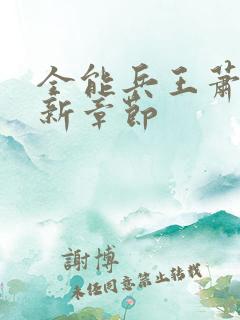 全能兵王萧
新章节
謝博
未经同意禁止转载